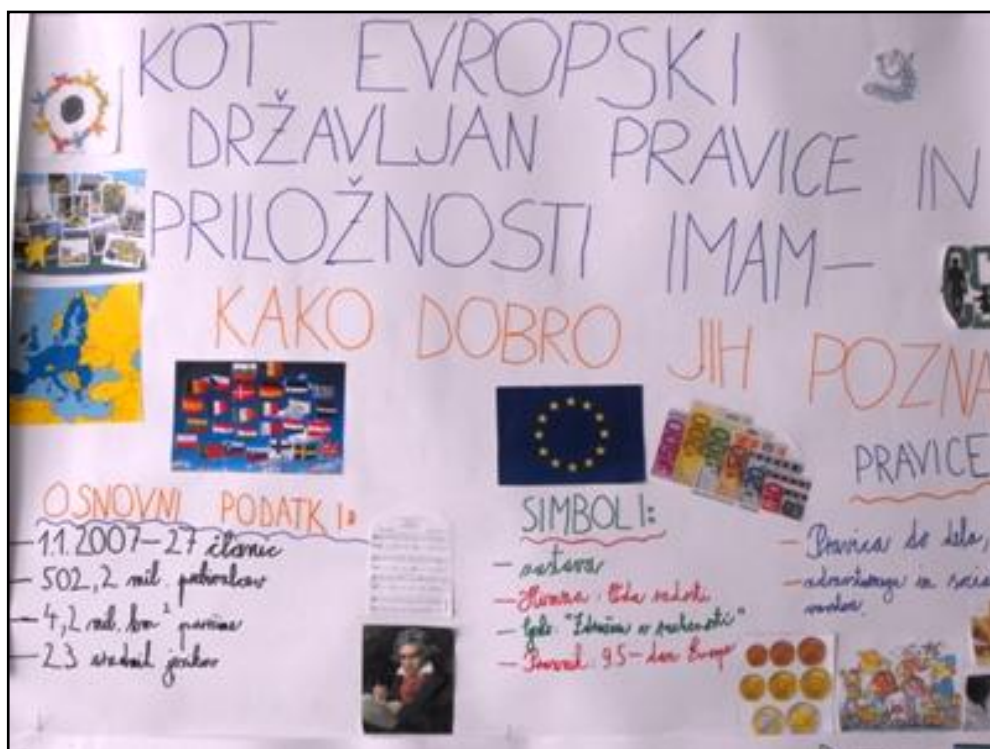 KOT EVROPSKI
DRŽAVLJAN PRAVICE IN
PRILOŽNOSTI IMAM–
KAKO DOBRO JIH POZNA
OSNOVNI PODATKI:
– 1.1.2007 – 27 članic
– 502,2 mil. prebivalcev
– 4,2 mil. km² površine
– 23 uradnih jezikov
SIMBOLI:
– zastava
– Himna: Oda radosti
– Geslo: "Združeni v različnosti"
– Praznik: 9.5 – dan Evrope
PRAVICE
– Pravica do dela,
– zdravstvenega in socia